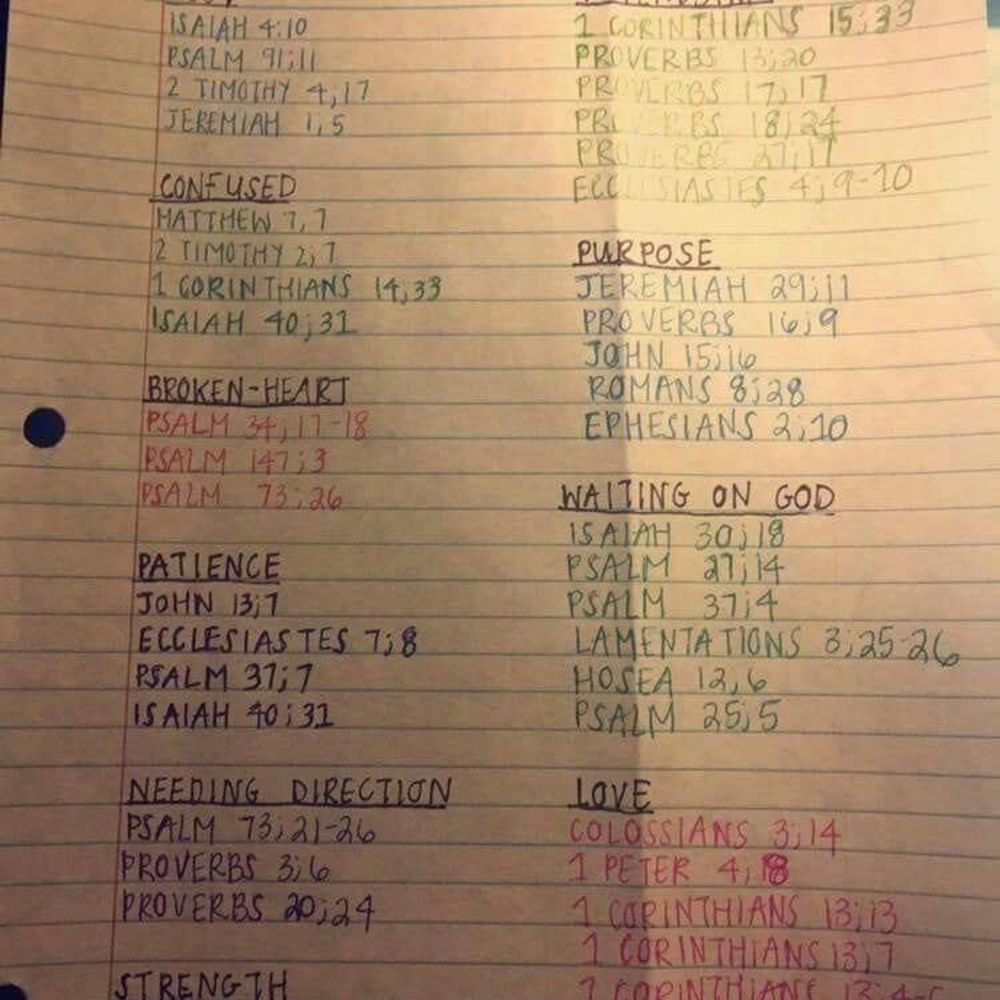 ISAIAH 4:10
PSALM 91;11
2 TIMOTHY 4,17
JEREMIAH 1,5
CONFUSED
MATTHEW 7,7
2 TIMOTHY 2;7
1 CORINTHIANS 14,33
ISAIAH 40;31
BROKEN-HEART
PSALM 34;17-18
PSALM 147;3
PSALM 73;26
PATIENCE
JOHN 13;7
ECCLESIASTES 7;8
PSALM 37;7
ISAIAH 40;31
NEEDING DIRECTION
PSALM 73;21-26
PROVERBS 3;6
PROVERBS 20;24
STRENGTH
1 CORINTHIANS 15;33
PROVERBS 13;20
PROVERBS 17;17
PROVERBS 18;24
PROVERBS 27;17
ECCLESIASTES 4;9-10
PURPOSE
JEREMIAH 29;11
PROVERBS 16;9
JOHN 15;16
ROMANS 8;28
EPHESIANS 2;10
WAITING ON GOD
ISAIAH 30;18
PSALM 27;14
PSALM 37;4
LAMENTATIONS 3;25-26
HOSEA 12,6
PSALM 25;5
LOVE
COLOSSIANS 3;14
1 PETER 4;8
1 CORINTHIANS 13;13
1 CORINTHIANS 13;7
1 CORINTHIANS